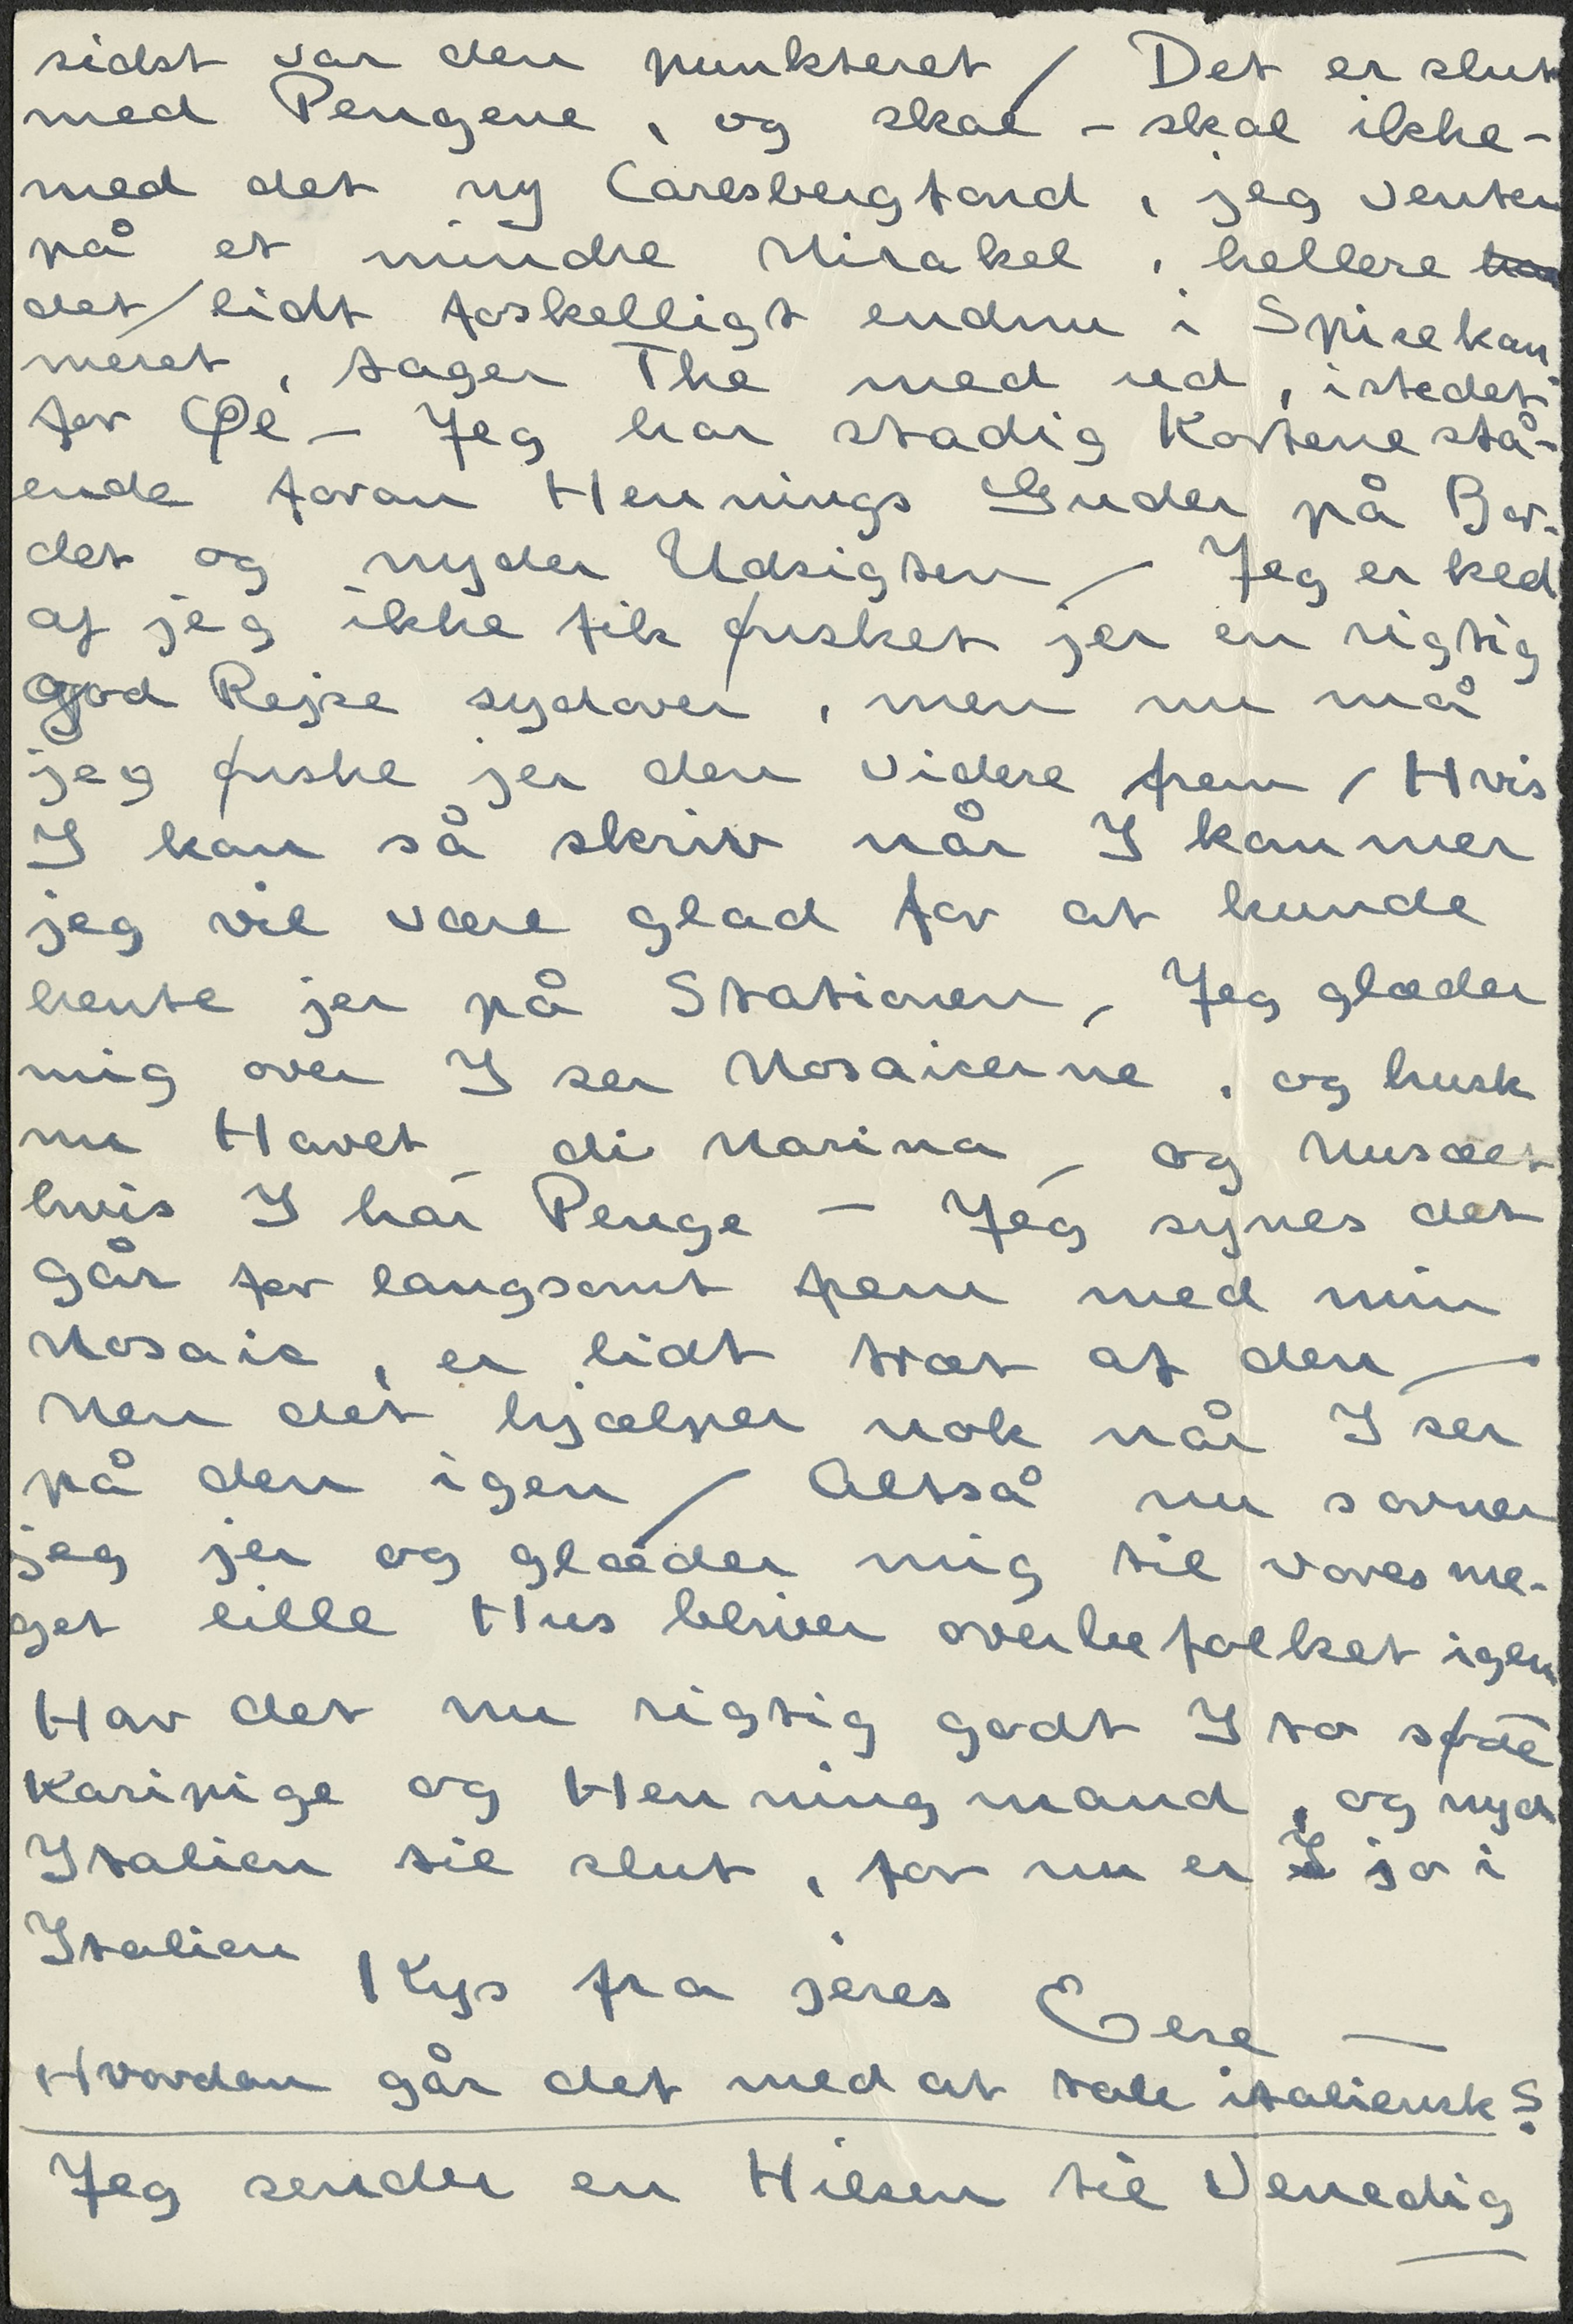 sidst var den punkteret / Det er slut
med Pengene, og skal - skal ikke -
med det ny Carlsbergfond, jeg venter
på et mindre Mirakel, hellere
det / lidt forskelligt endnu i Spisekam
meret, tager The med ud, istedet
for Øl - Jeg har stadig Kortene stå-
ende foran Hennings Guder på Bor-
det og nyder Udsigten / Jeg er ked
af jeg ikke fik ønsket jer en rigtig
god Rejse sydover, men nu må
jeg ønske jer den videre frem / Hvis
I kan så skriv når I kommer
jeg vil være glad for at kunde
hente jer på Stationen, Jeg glæder
mig over I ser Mosaicerne, og husk
nu Havet - di Marina - og Musæet
hvis I har Penge - Jeg synes det
går for langsomt frem med min
Mosaic, er lidt træt af den -
Men det hjælper nok når I ser
på den igen / Altså nu savner
jeg jer og glæder mig til vores me-
get lille Hus bliver overbefolket igen
Hav det nu rigtig godt I to søde
Karipige og Henningmand, og nyd
Italien til slut, for nu er I jo i
Italien
Kys fra jeres Else -
Hvordan går det med at tale italiensk?
Jeg sender en Hilsen til Venedig